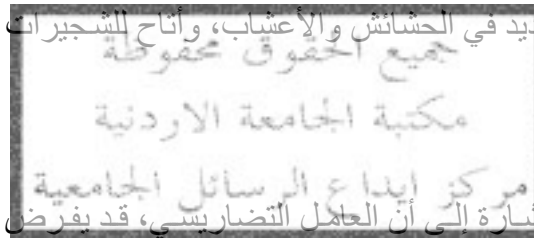 ديد في الحشائش والأعشاب، وأتاح للشجيرات
جميع الحقوق محفوظة
مكتبة الجامعة الاردنية
مركز ايداع الرسائل الجامعية
شارة إلى أن العامل التضاريسي، قد يفرض